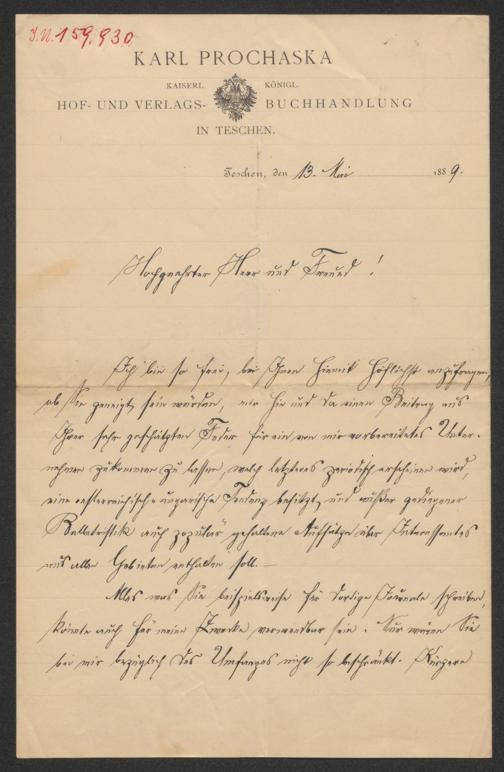 J.N. 159.930
KARL PROCHASKA
KAISERL. KÖNIGL.
HOF- UND VERLAGS- BUCHHANDLUNG
IN TESCHEN.
Teschen, den 13. Mai 1889.
Hochgeehrter Herr und Freund!
Ich bin so frei, bei Ihnen hiemit höflichst anzufragen,
ob Sie geneigt sein würden, mir hie und da einen Beitrag aus
Ihrer sehr geschätzten Feder für ein von mir vorbereitetes Unter-
nehmen zukommen zu lassen, welch letzteres periodisch erscheinen wird,
eine oesterreichisch-ungarische Tendenz besitzt, und außer gediegener
Belletristik auch populär gehaltene Aufsätze über Interessantes
aus allen Gebieten enthalten soll. —
Alles was Sie beispielsweise für dortige Journale schreiben,
könnte auch für meine Zwecke verwendbar sein. Nur wären Sie
bei mir bezüglich des Umfanges nicht so beschränkt. Kürzere